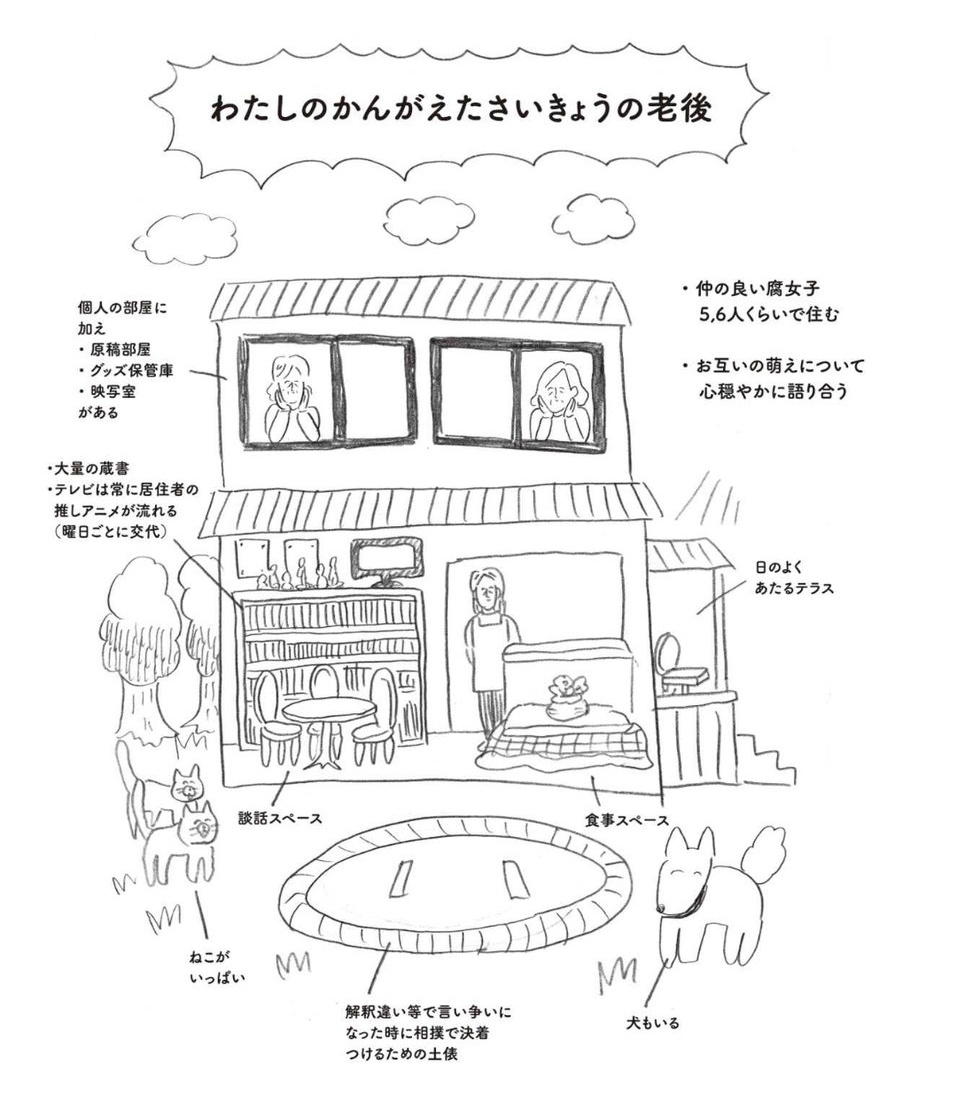 わたしのかんがえたさいきょうの老後
個人の部屋に
加え
・原稿部屋
・グッズ保管庫
・映写室
がある
・仲の良い腐女子
5,6人くらいで住む
・お互いの萌えについて
心穏やかに語り合う
・大量の蔵書
・テレビは常に居住者の
推しアニメが流れる
（曜日ごとに交代）
日のよく
あたるテラス
談話スペース
食事スペース
ねこが
いっぱい
解釈違い等で言い争いに
なった時に相撲で決着
つけるための土俵
犬もいる